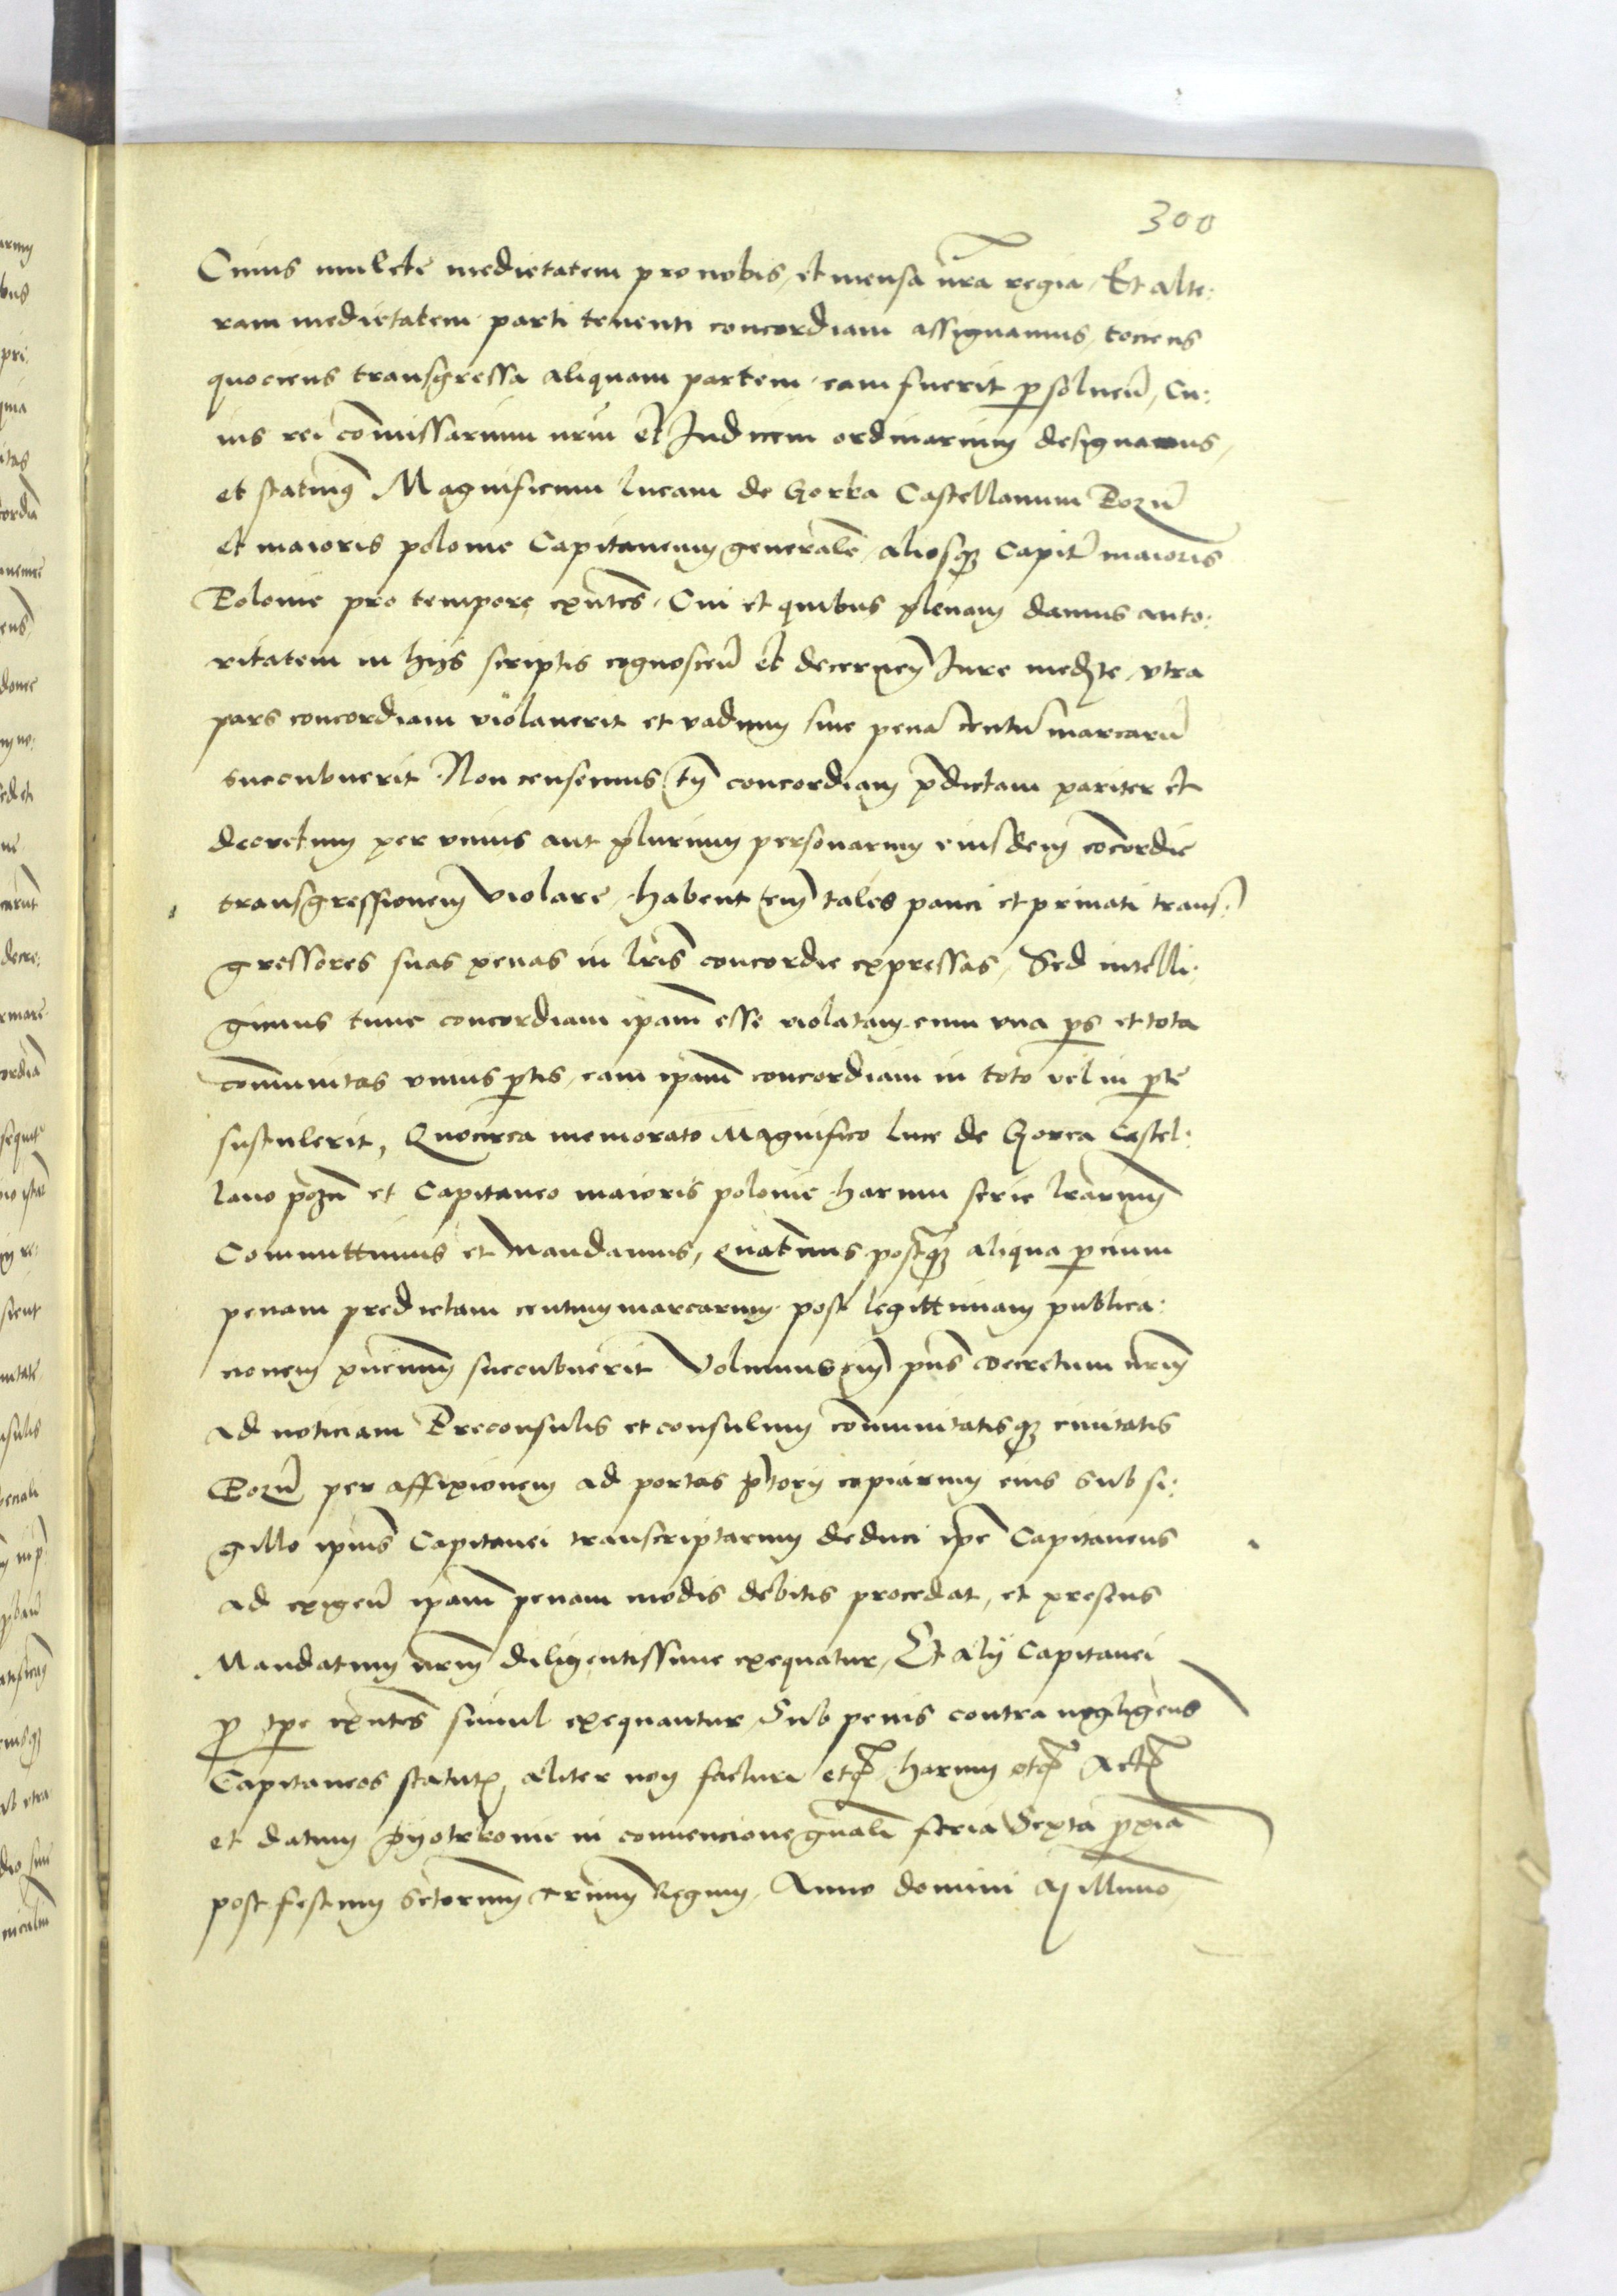 300
Cuius mulcte medietatem pro nobis, et mensa nr̃a regia, Et alte:
ram medietatem parti tenenti concordiam assignamus, tociens
quociens transgressa aliquam partem eam fuerit ꝑsoluen̄, Cu:
ius rei com̄issarium nr̄m et Iudicem ordinarium designamus,
et statuimꝰ Magnificum lucam de Gorka Castellanum Pozn̄
et maioris polonie Capitaneum generalē, aliosqꝫ Capit̄ maioris
Polonie pro tempore exn̄tes. Cui et quibus plenam damus auto:
ritatem in hijs scriptis cognoscen̄ et decernen̄ Iure med̄te, vtra
pars concordiam violauerit et vadium siue pena centū marcarū
succubuerit. Non censemus tn̄ concordiam p̄dictam pariter et
decretum per vnius aut plurium personarum eiusdem cōcordie
transgressionem violare, habent em̄ tales pauci et priuati trans:
gressores suas penas in lr̄is concordie expressas, Sed intelli:
gimus tunc concordiam ip̄am esse violatam cum vna ꝑs et tota
com̄unitas vnius ꝑtis, eam ip̄am concordiam in toto vel in ꝑte
sustulerit, Quocirca memorato Magnifico luce de Gorca Castel:
lano pozn̄ et Capitaneo maioris polonie harum serie lr̄arum
Committimus et mandamus, quatenus postqꝫ aliqua ꝑcium
penam predictam centum marcarum post legittimam publica:
cionem pn̄cium succubuerit Volumus em̄ pn̄s decretum nr̄m
ad noticiam Preconsulis et consulum com̄unitatisqꝫ ciuitatis
Pozn̄ per affixionem ad portas p̄torij copiarum eius sub si:
gillo ip̄ius Capitanei transcriptarum deduci ip̄e Capitaneus
ad exigen̄ ip̄am penam modis debitis procedat, et presens
Mandatum nr̄m diligentissime exequatur, Et alij Capitanei
ꝓ tp̄e exn̄tes simul exequantur, Sub penis contra negligens
Capitaneos statutꝭ, aliter non facturi etcͣ harum etcͣ Actꝭ
et datum Pyotrkouie in conuencione gn̄ali feria Sexta ꝓxīa
post festum sctorum trium Regum, Anno domini Millimo